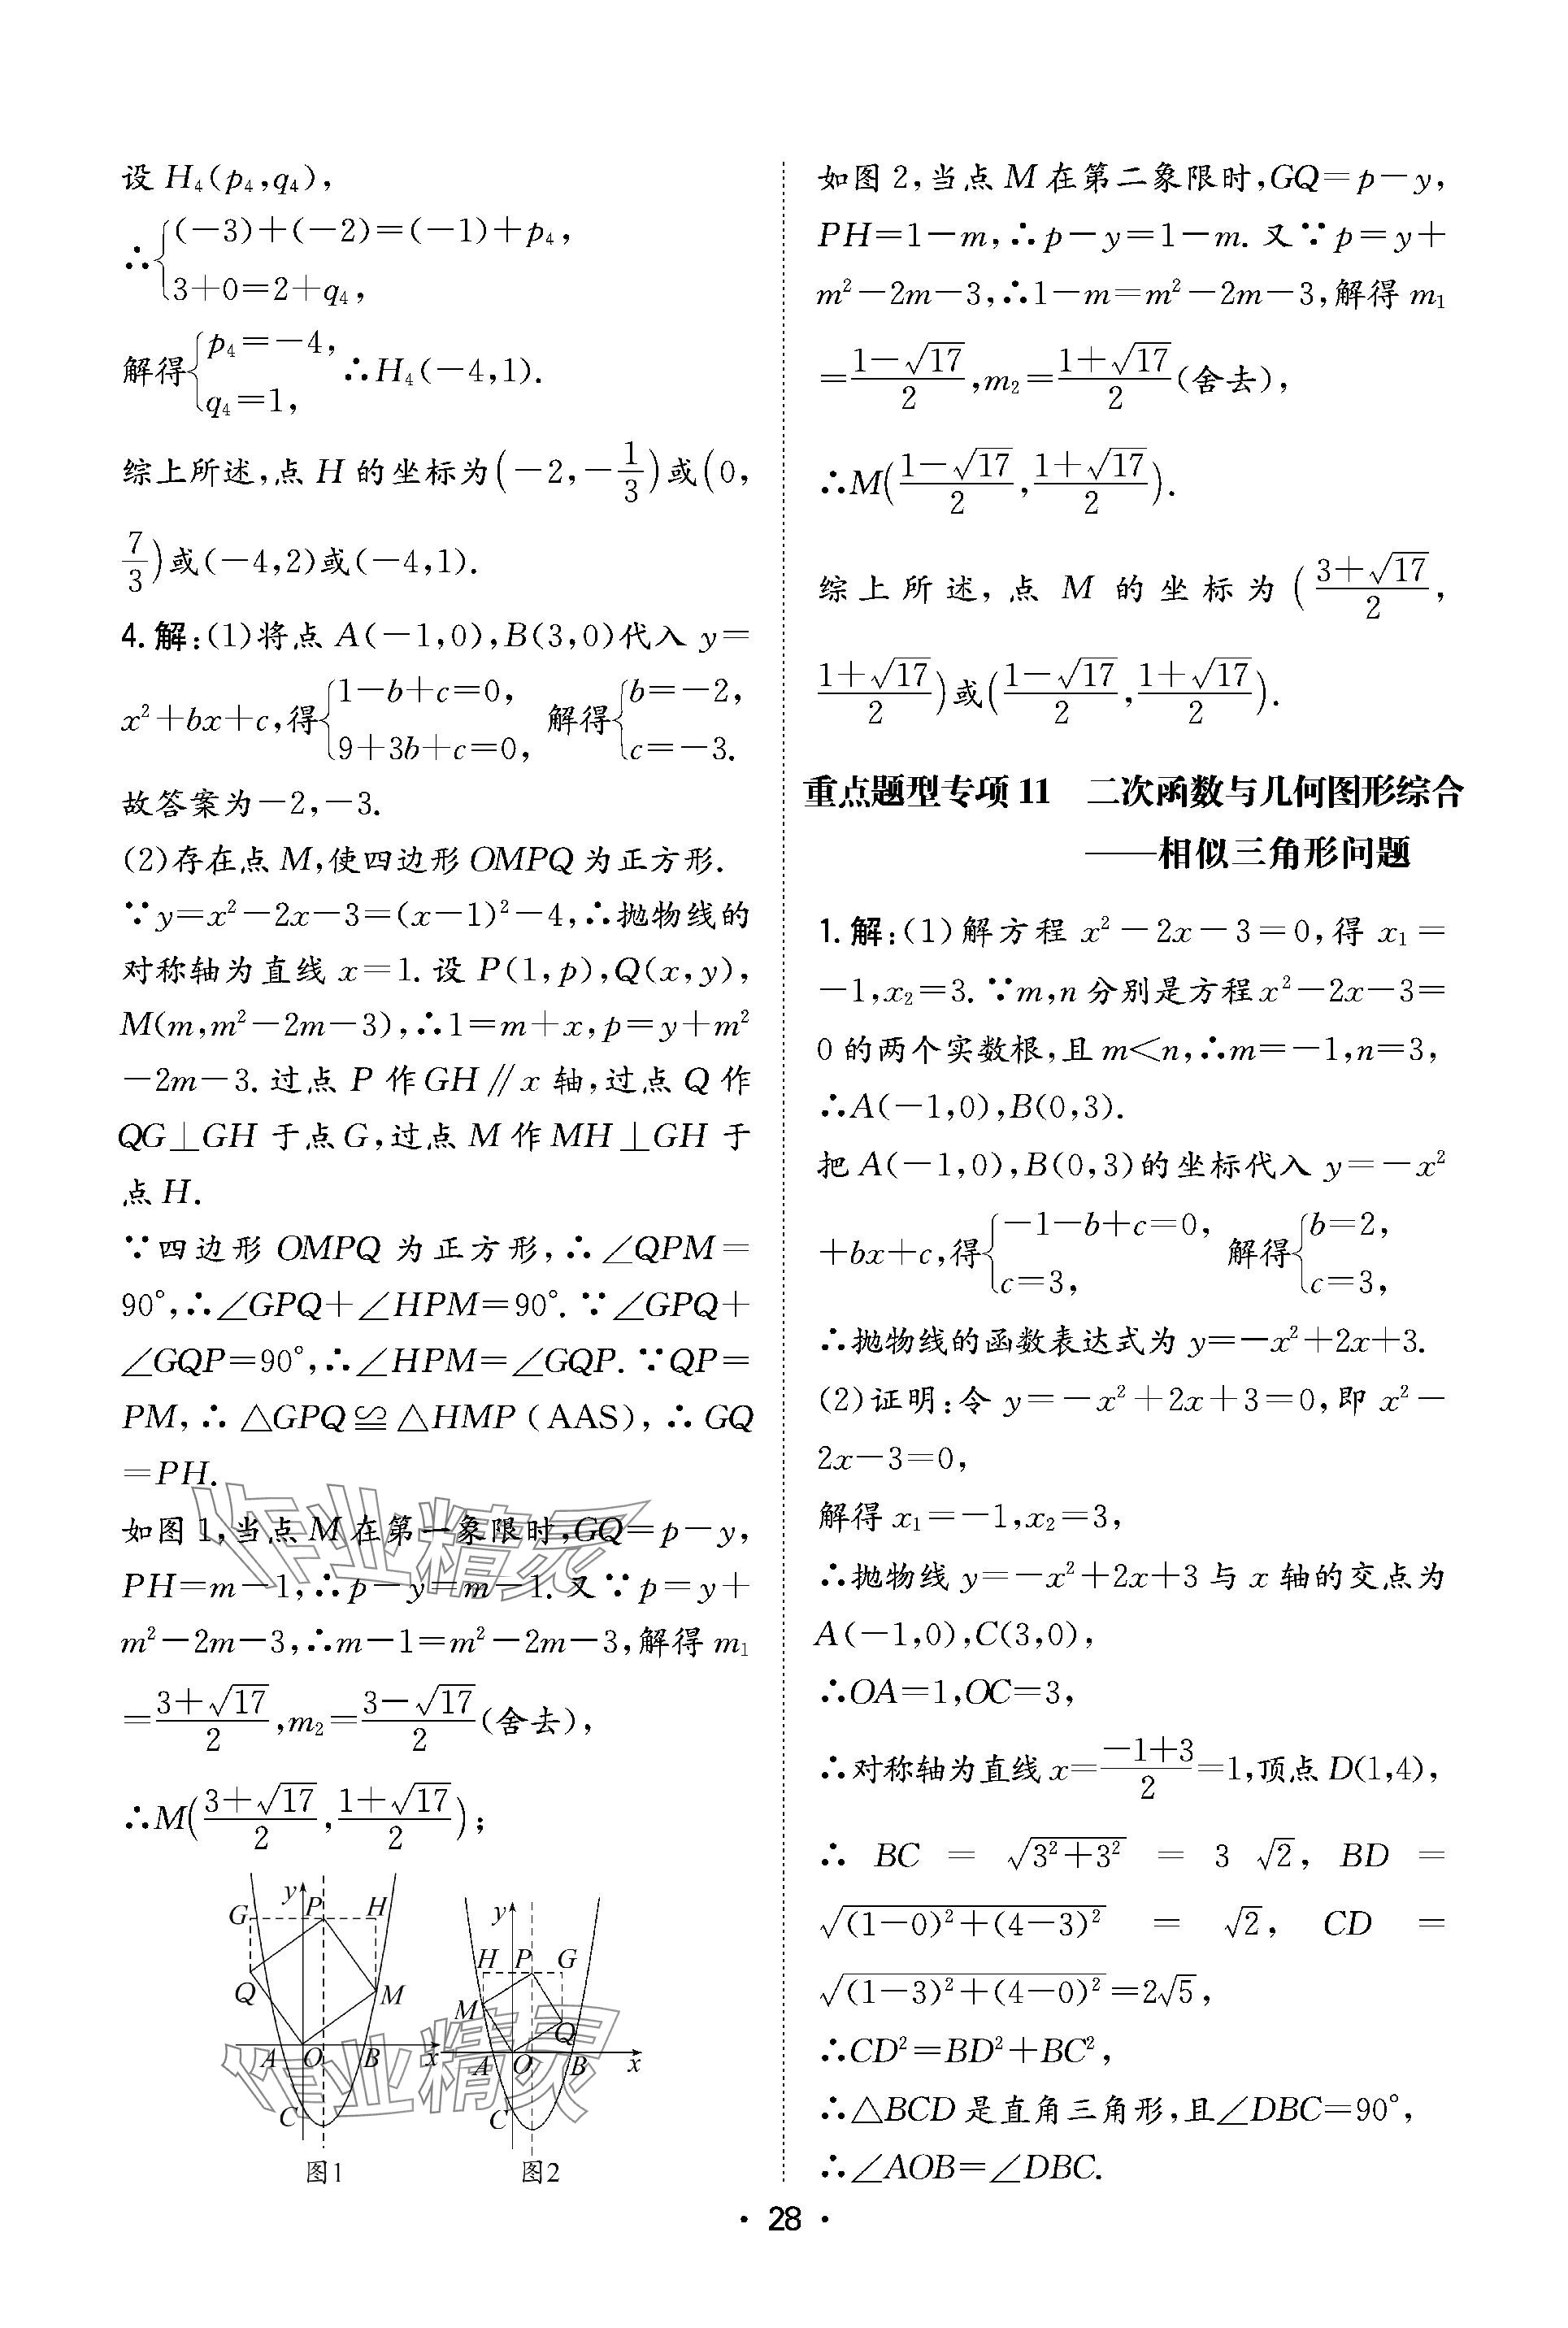 设 H₄(p₄,q₄),
∴{(-3)+(-2)=(-1)+p₄,
3+0=2+q₄,
解得{p₄=-4, q₄=1, ∴H₄(-4,1).
综上所述,点 H 的坐标为(-2,-1/3)或(0,
7/3)或(-4,2)或(-4,1).
4.解:(1)将点 A(-1,0),B(3,0)代入 y=
x²+bx+c,得{1-b+c=0, 9+3b+c=0, 解得{b=-2, c=-3.
故答案为-2,-3.
(2)存在点 M,使四边形 OMPQ 为正方形.
∵y=x²-2x-3=(x-1)²-4,∴抛物线的
对称轴为直线 x=1. 设 P(1,p),Q(x,y),
M(m,m²-2m-3),∴1=m+x,p=y+m²
-2m-3. 过点 P 作 GH∥x 轴,过点 Q 作
QG⊥GH 于点 G,过点 M 作 MH⊥GH 于
点 H.
∵四边形 OMPQ 为正方形,∴∠QPM=
90°,∴∠GPQ+∠HPM=90°. ∵∠GPQ+
∠GQP=90°,∴∠HPM=∠GQP. ∵QP=
PM,∴△GPQ≌△HMP(AAS),∴GQ
=PH.
如图1,当点 M 在第一象限时,GQ=p-y,
PH=m-1,∴p-y=m-1. 又∵p=y+
m²-2m-3,∴m-1=m²-2m-3,解得 m₁
=(3+√17)/2,m₂=(3-√17)/2(舍去),
∴M((3+√17)/2,(1+√17)/2);
G y P H
Q M
A O B x
C
图1
y
H P G
M Q
A O B x
C
图2
如图2,当点 M 在第二象限时,GQ=p-y,
PH=1-m,∴p-y=1-m. 又∵p=y+
m²-2m-3,∴1-m=m²-2m-3,解得 m₁
=(1-√17)/2,m₂=(1+√17)/2(舍去),
∴M((1-√17)/2,(1+√17)/2).
综上所述,点 M 的坐标为((3+√17)/2,
(1+√17)/2)或((1-√17)/2,(1+√17)/2).
重点题型专项11 二次函数与几何图形综合
——相似三角形问题
1.解:(1)解方程 x²-2x-3=0,得 x₁=
-1,x₂=3. ∵m,n 分别是方程 x²-2x-3=
0的两个实数根,且 m<n,∴m=-1,n=3,
∴A(-1,0),B(0,3).
把 A(-1,0),B(0,3)的坐标代入 y=-x²
+bx+c,得{-1-b+c=0, c=3, 解得{b=2, c=3,
∴抛物线的函数表达式为 y=-x²+2x+3.
(2)证明:令 y=-x²+2x+3=0,即 x²-
2x-3=0,
解得 x₁=-1,x₂=3,
∴抛物线 y=-x²+2x+3 与 x 轴的交点为
A(-1,0),C(3,0),
∴OA=1,OC=3,
∴对称轴为直线 x=(-1+3)/2=1,顶点 D(1,4),
∴ BC = √(3²+3²) = 3√2, BD =
√((1-0)²+(4-3)²) = √2, CD =
√((1-3)²+(4-0)²)=2√5,
∴CD²=BD²+BC²,
∴△BCD 是直角三角形,且∠DBC=90°,
∴∠AOB=∠DBC.
· 28 ·
作业精灵
作业精灵